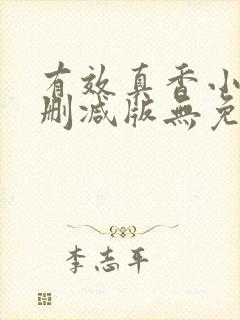 有效真香小
删减版無免
李志平